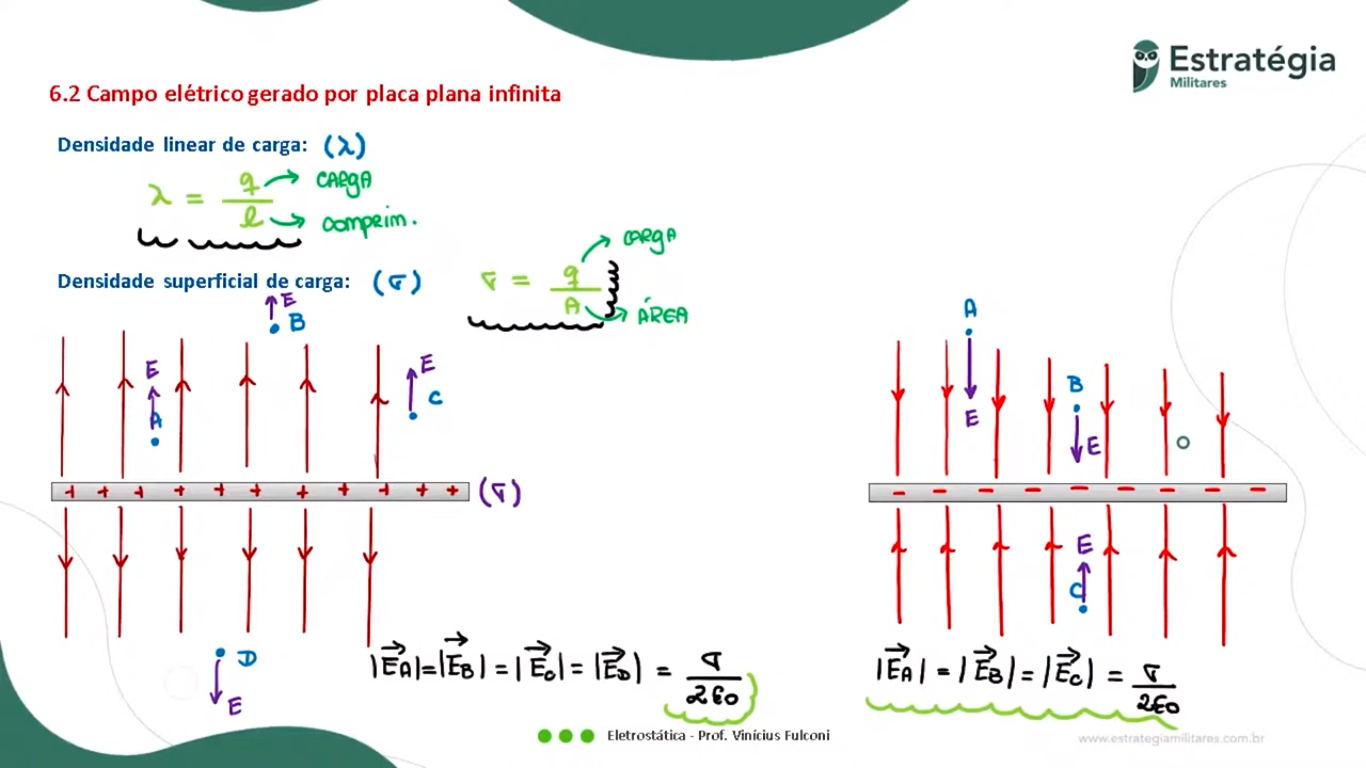 Estratégia
Militares
6.2 Campo elétrico gerado por placa plana infinita
Densidade linear de carga: (λ)
λ = q / l
CARGA
COMPRIM.
Densidade superficial de carga: (σ)
σ = q / A
CARGA
ÁREA
E
B
E
A
E
C
+ + + + + + + + + + + (σ)
D
E
|E⃗A| = |E⃗B| = |E⃗C| = |E⃗D| = σ / 2ε0
A
E
B
E
- - - - - - - - -
E
C
|E⃗A| = |E⃗B| = |E⃗C| = σ / 2ε0
Eletrostática - Prof. Vinícius Fulconi
www.estrategiamilitares.com.br